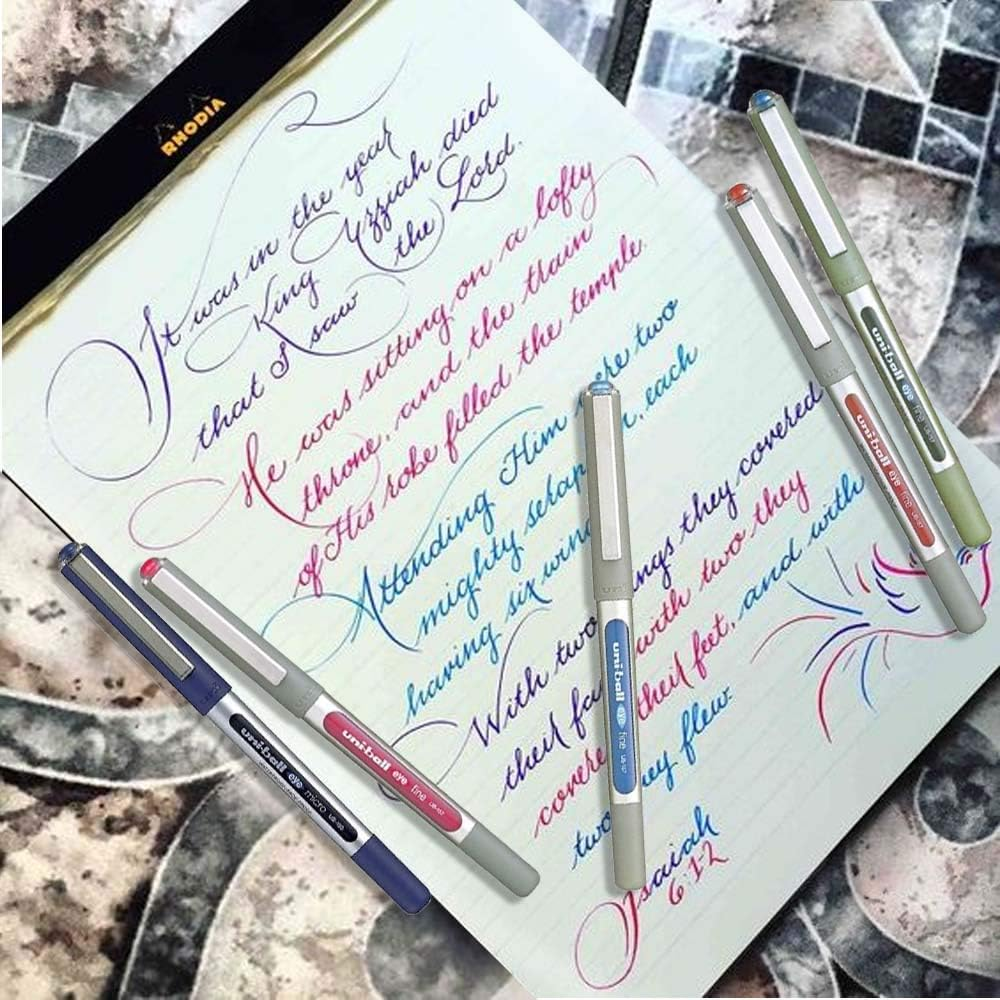 RHODIA
It was in the year
King Uzziah died
that I saw the Lord.
He was sitting on a lofty
throne, and the train
of His robe filled the temple.
Attending Him were two
mighty serap m, each
having six win
With two ings they covered
their fa with two they
covere their feet, and with
two ey flew.
Isaiah
6:1-2
uni-ball eye micro UB-150
uni-ball eye fine UB-157
uni-ball eye fine UB-157
uni-ball eye fine UB-157
uni-ball eye fine UB-157